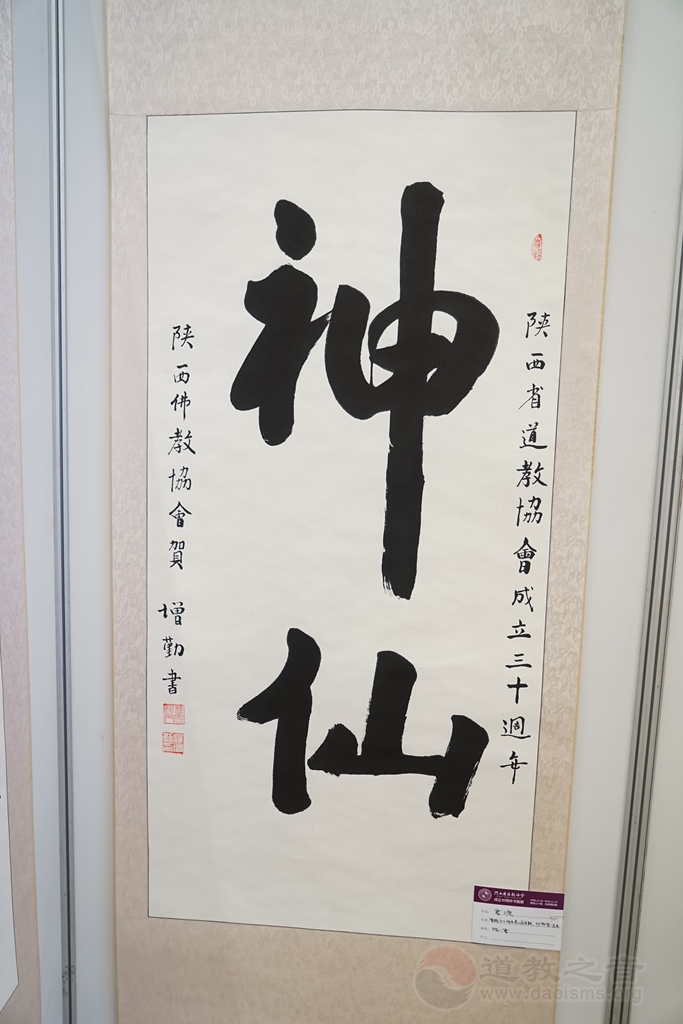 陝西省道教協會成立三十週年
神仙
陝西佛教協會賀
增勤書
道教之音
www.daoisms.org